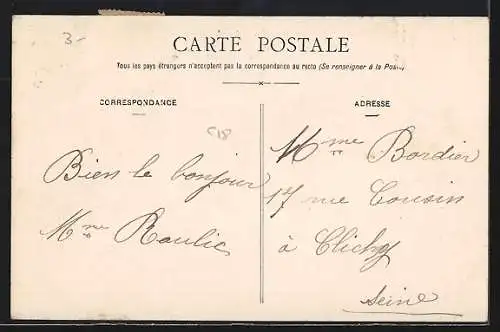 3-
CARTE POSTALE
Tous les pays étrangers n'acceptent pas la correspondance au recto (Se renseigner à la Poste)
CORRESPONDANCE
ADRESSE
C18
Bien le bonjour
Mme Raulic
Mme Bordier
17 rue Cousin
à Clichy
Seine